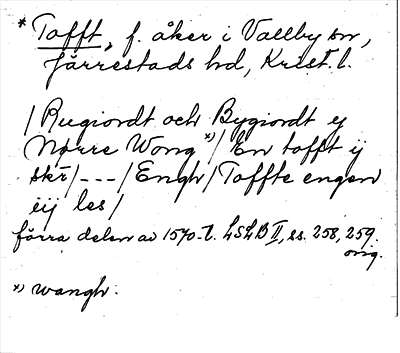 * Tofft, f. åker i Vallby sn,
Järrestads hd, Krist. l.
/ Rugiordt och Bygiordt ej
Nørre Wong *)/ En tofft ij
skr/---/ Engh/ Toffte engen
iij les/
förra delen av 1570-t. LSLB II, ss. 258, 259.
orig.
*) wangh.